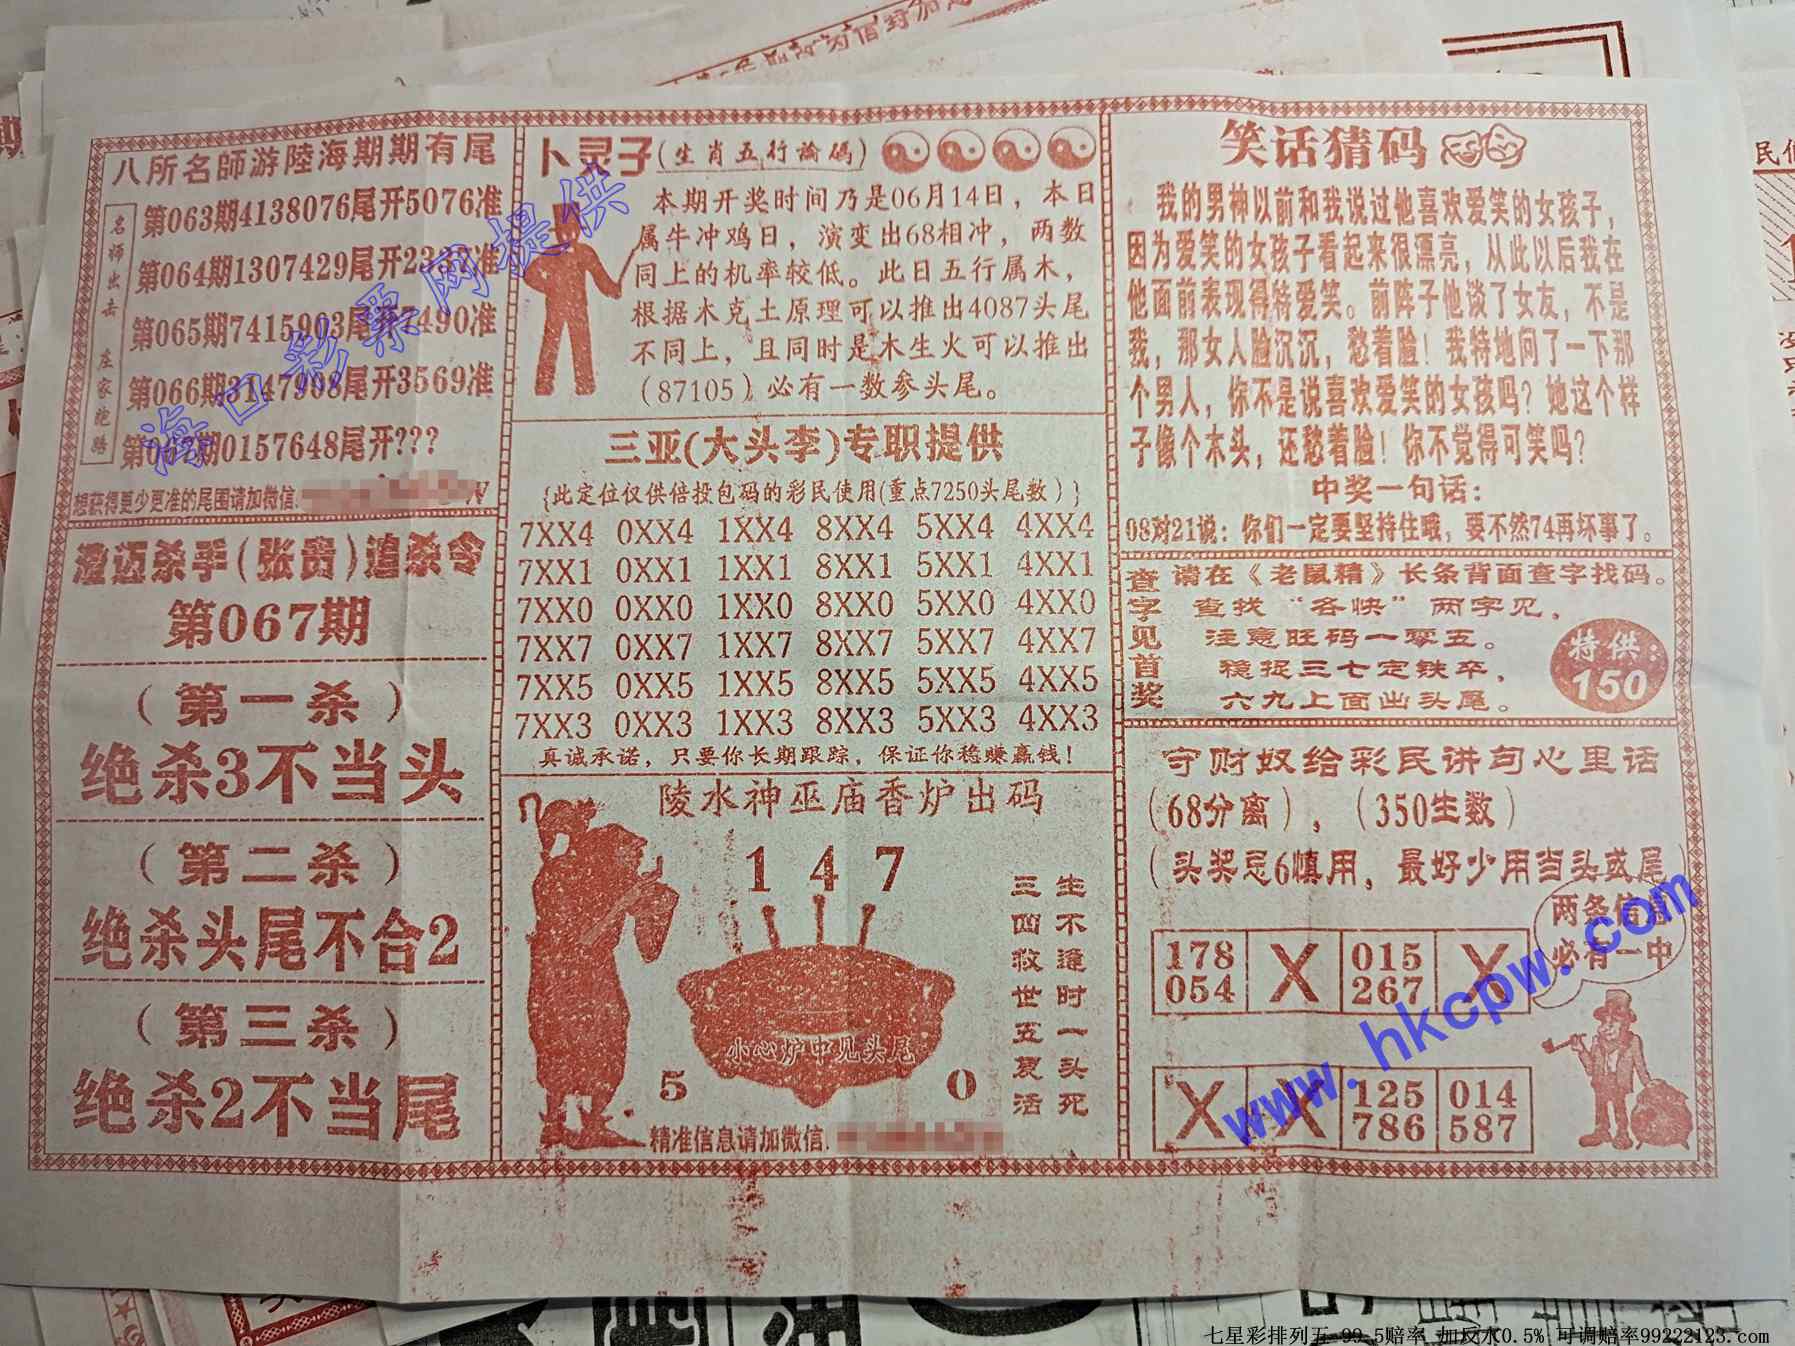 八所名師游陸海期期有尾
名师出击 庄家跑路
第063期4138076尾开5076准
第064期1307429尾开23准
第065期7415903尾开490准
第066期3147908尾开3569准
第067期0157648尾开???
想获得更少更准的尾围请加微信:
澄迈杀手(张贵)追杀令
第067期
(第一杀)
绝杀3不当头
(第二杀)
绝杀头尾不合2
(第三杀)
绝杀2不当尾
卜灵子(生肖五行論碼)
本期开奖时间乃是06月14日，本日
属牛冲鸡日，演变出68相冲，两数
同上的机率较低。此日五行属木，
根据木克土原理可以推出4087头尾
不同上，且同时是木生火可以推出
(87105)必有一数参头尾。
三亚(大头李)专职提供
{此定位仅供倍投包码的彩民使用(重点7250头尾数)}
7XX4 0XX4 1XX4 8XX4 5XX4 4XX4
7XX1 0XX1 1XX1 8XX1 5XX1 4XX1
7XX0 0XX0 1XX0 8XX0 5XX0 4XX0
7XX7 0XX7 1XX7 8XX7 5XX7 4XX7
7XX5 0XX5 1XX5 8XX5 5XX5 4XX5
7XX3 0XX3 1XX3 8XX3 5XX3 4XX3
真诚承诺，只要你长期跟踪，保证你稳赚赢钱！
陵水神巫庙香炉出码
1 4 7
生不逢时一头死
三四救世五复活
小心炉中见头尾
5 0
精准信息请加微信:
笑话猜码
我的男神以前和我说过他喜欢爱笑的女孩子，
因为爱笑的女孩子看起来很漂亮，从此以后我在
他面前表现得特爱笑。前阵子他谈了女友，不是
我，那女人脸沉沉，愁着脸！我特地问了一下那
个男人，你不是说喜欢爱笑的女孩吗？她这个样
子像个木头，还愁着脸！你不觉得可笑吗？
中奖一句话：
08对21说：你们一定要坚持住哦，要不然74再坏事了。
查字见首奖
请在《老鼠精》长条背面查字找码。
查找“各快”两字见，
注意旺码一零五。
稳捉三七定铁卒，
六九上面出头尾。
特供：
150
守财奴给彩民讲句心里话
(68分离)，(350生数)
(头奖忌6慎用，最好少用当头或尾)
两条信息
必有一中
178 X 015 X
054 267
X X 125 014
786 587
海口彩票网提供
www.hkcpw.com
七星彩排列五 99.5赔率 加反水0.5% 可调赔率99222123.com